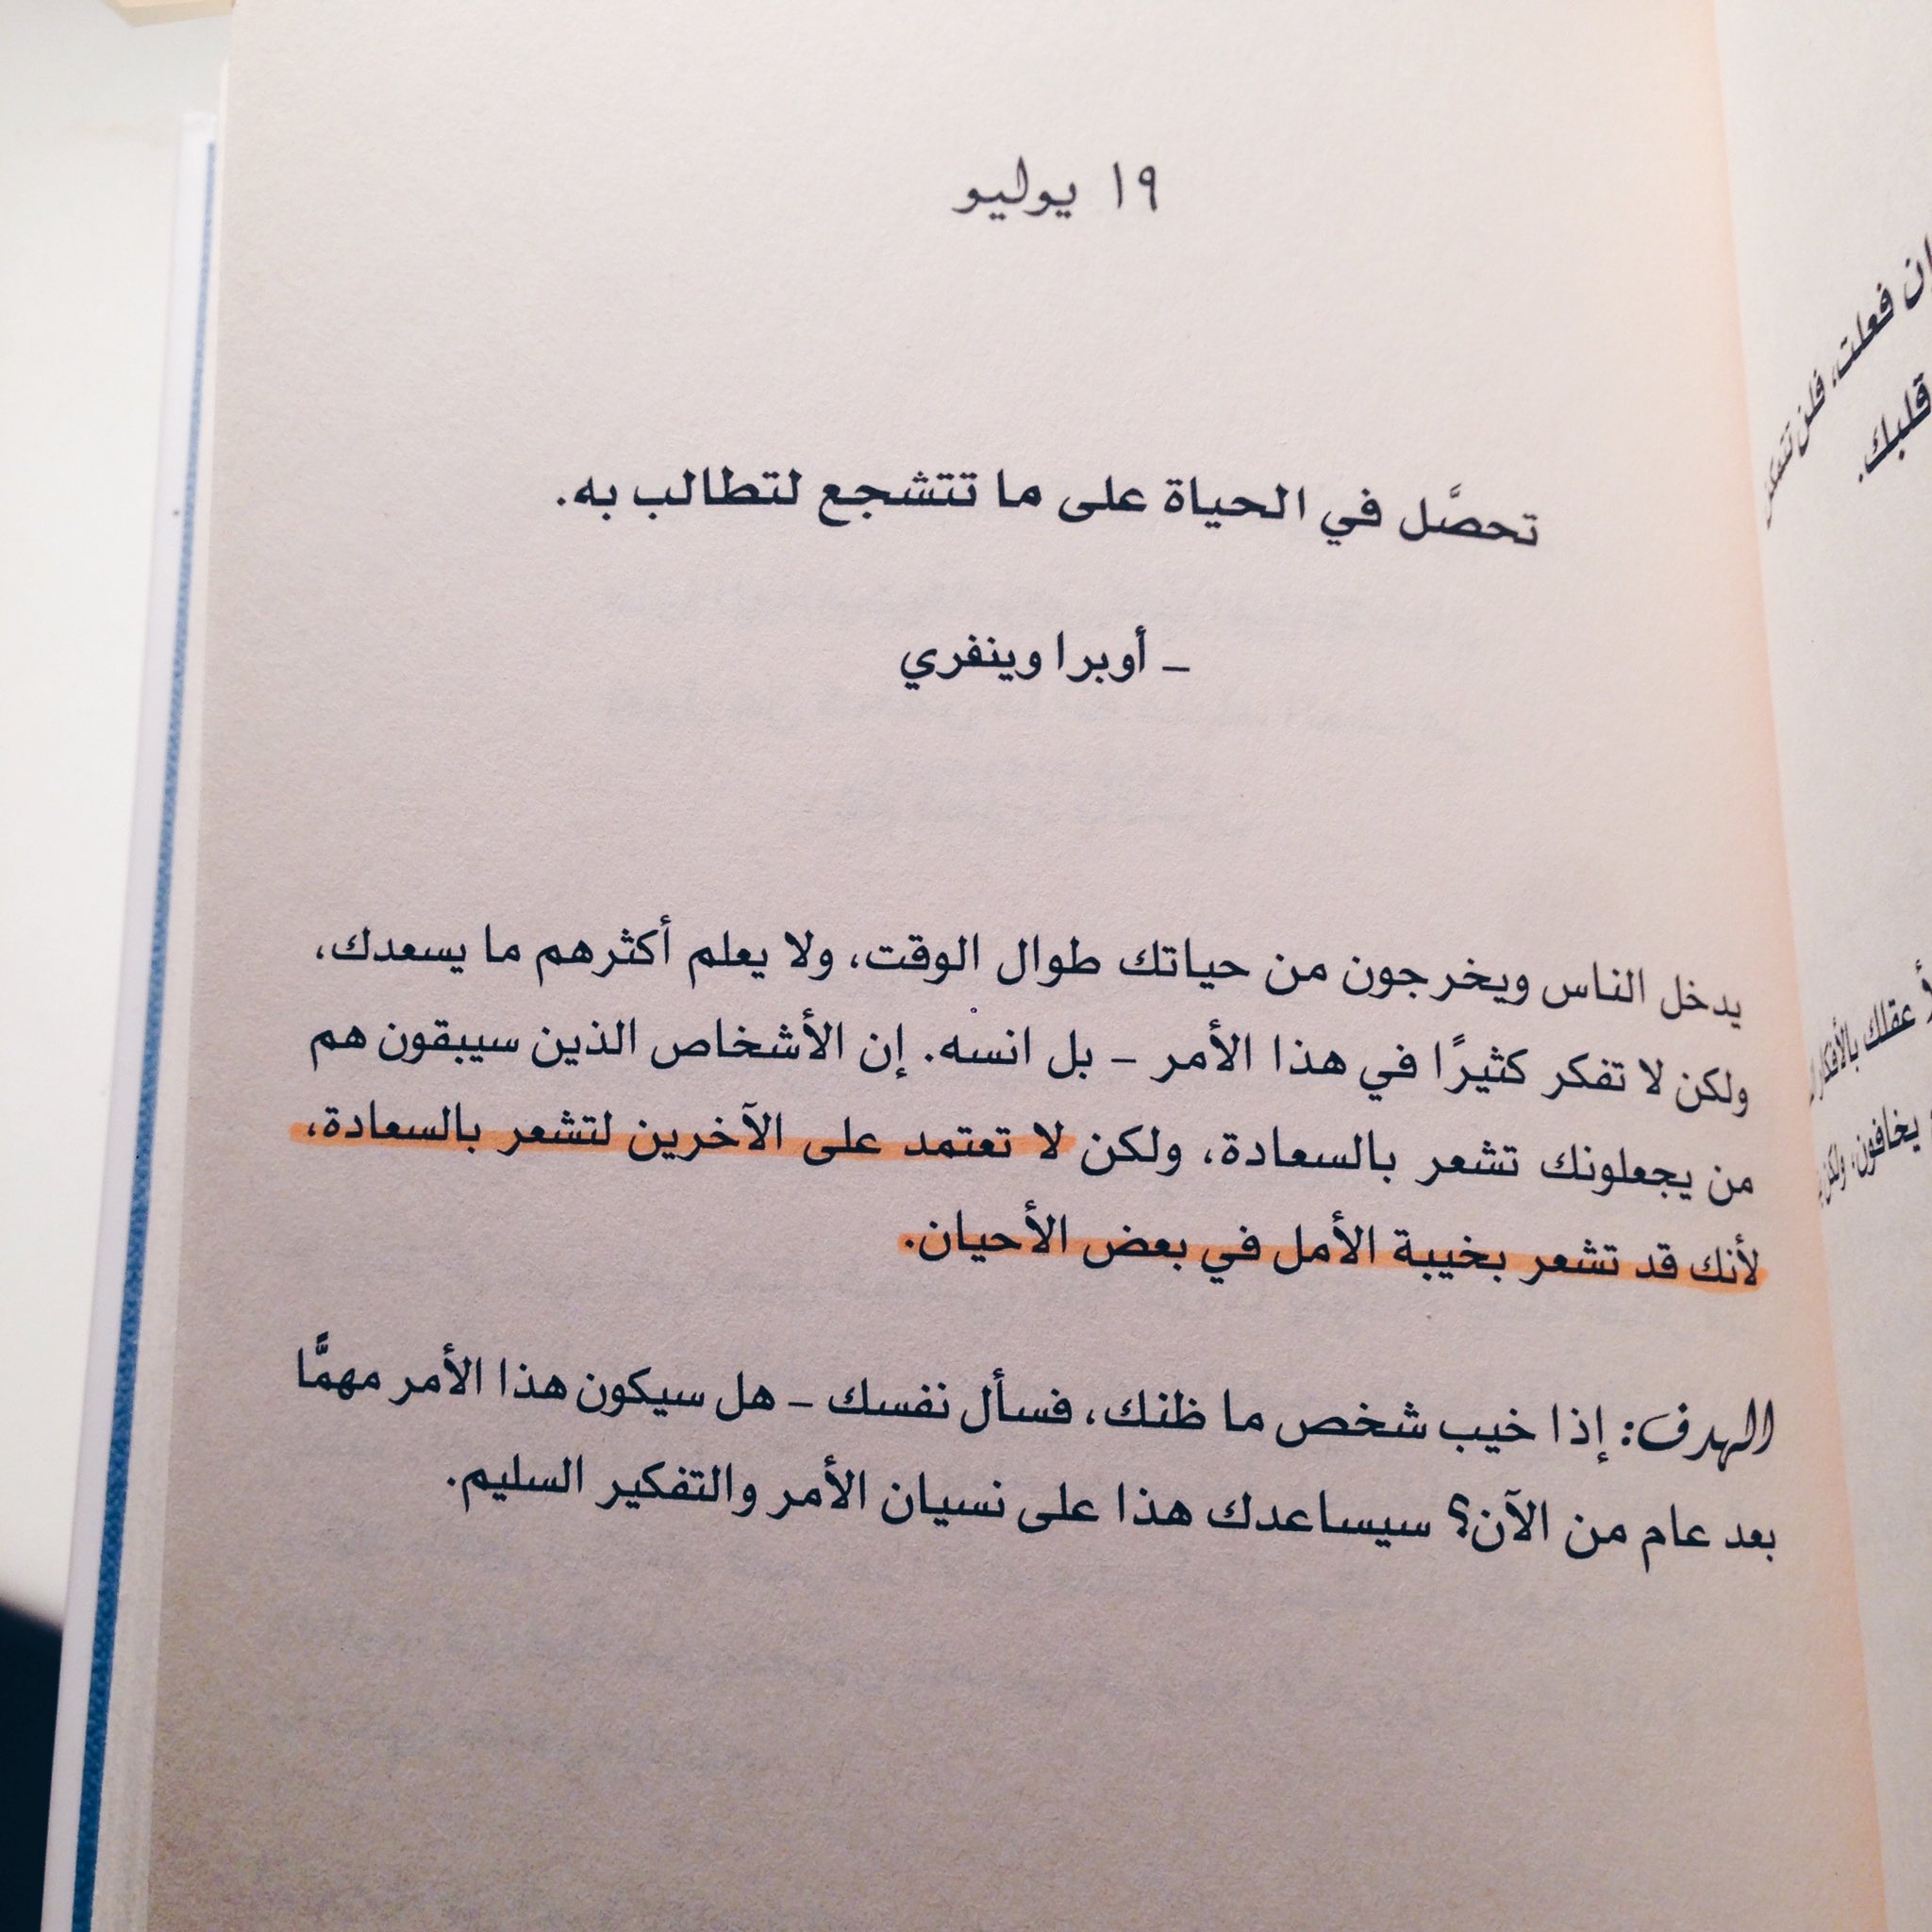 ١٩ يوليو
تحصَّل في الحياة على ما تتشجع لتطالب به.
– أوبرا وينفري
يدخل الناس ويخرجون من حياتك طوال الوقت، ولا يعلم أكثرهم ما يسعدك،
ولكن لا تفكر كثيرًا في هذا الأمر – بل انسه. إن الأشخاص الذين سيبقون هم
من يجعلونك تشعر بالسعادة، ولكن لا تعتمد على الآخرين لتشعر بالسعادة،
لأنك قد تشعر بخيبة الأمل في بعض الأحيان.
الهدف: إذا خيب شخص ما ظنك، فسأل نفسك – هل سيكون هذا الأمر مهمًّا
بعد عام من الآن؟ سيساعدك هذا على نسيان الأمر والتفكير السليم.
فعلت، فلن
قلبك.
عقلك بالأفكار
يخافون، ولكن